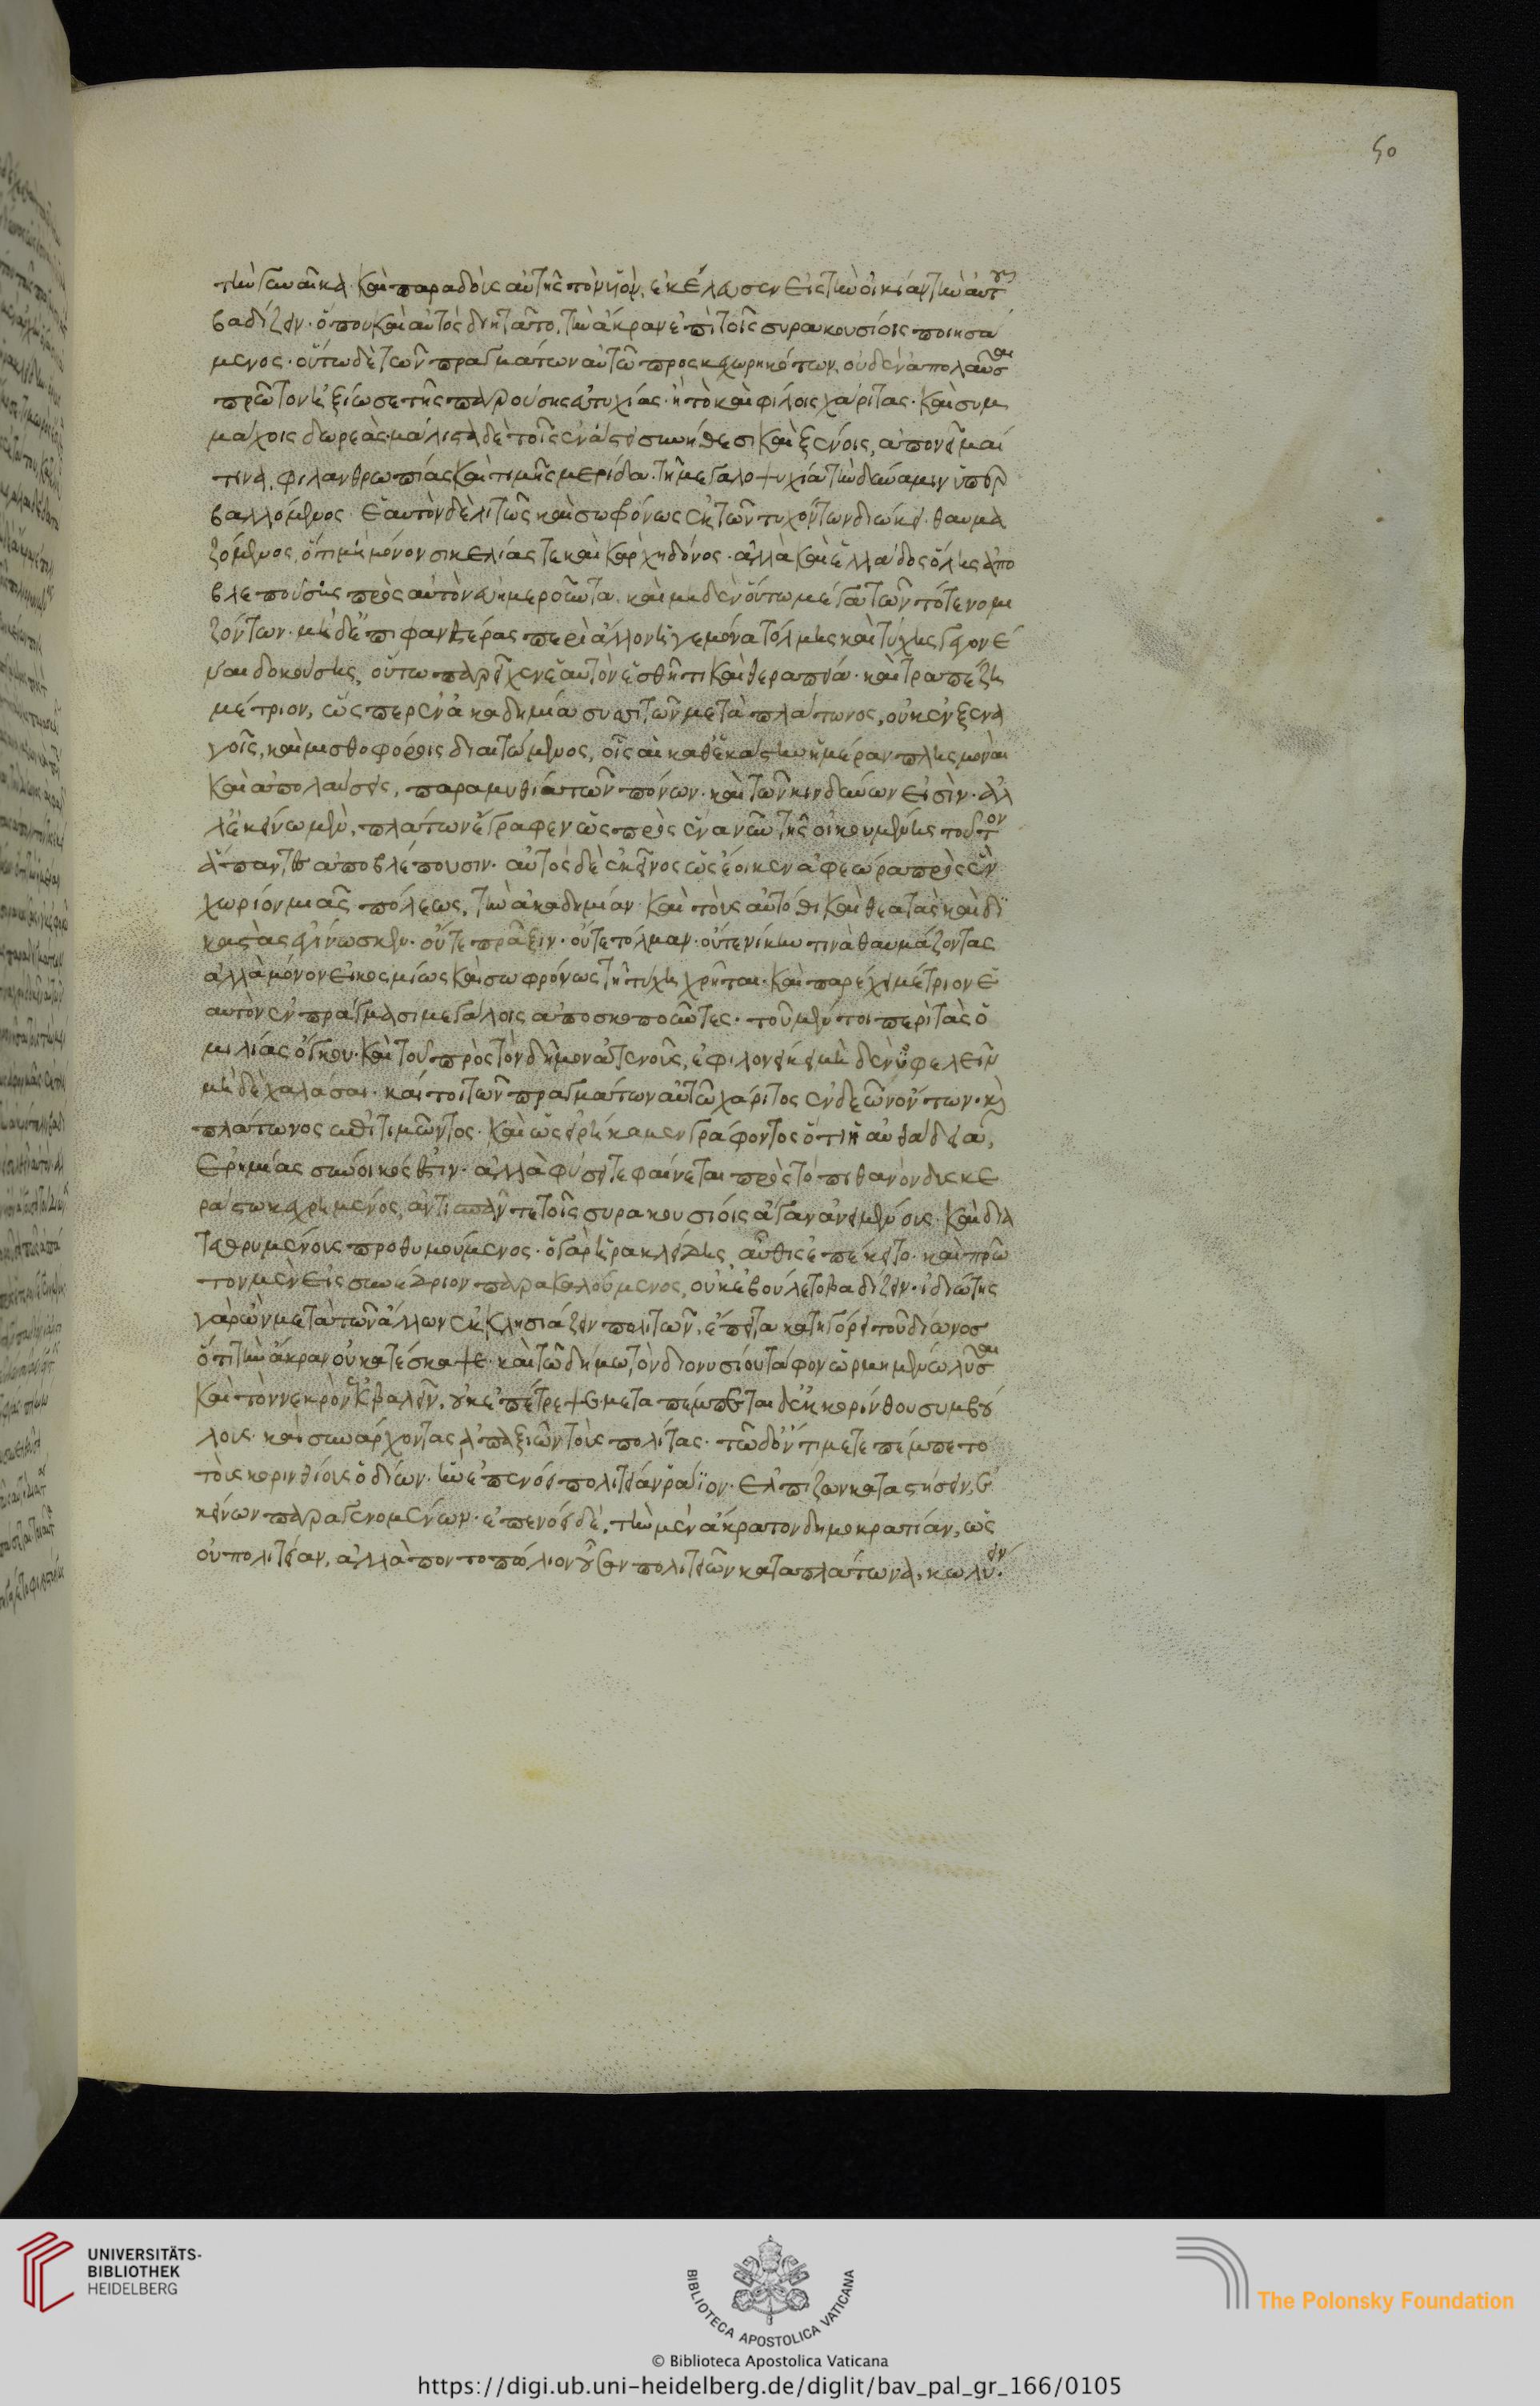 50
τὴν γυναῖκα. καὶ παραδοὺς αὐτῆς τὸν υἱὸν, ἐκέλευσεν εἰς τὴν οἰκίαν τὴν αὐτοῦ
βαδίζειν. ὅπου καὶ αὐτὸς διῃτᾶτο, τὴν ἄκραν ἐπὶ τοῖς συρακουσίοις ποιησά
μενος. οὕτω δὲ τῶν πραγμάτων αὐτῶ προσκεχωρηκότων, οὐδὲν ἀπολαῦσαι
πρῶτον ἠξίωσε τῆς παρούσης εὐτυχίας. ἢ τὸ καὶ φίλοις χάριτας. καὶ συμ
μάχοις δωρεὰς. μάλιστα δὲ τοῖς ἐν ἄστει συνήθεσι καὶ ξένοις, ἀπονεῖμαί
τινα, φιλανθρωπίας καὶ τιμῆς μερίδα. τῆ μεγαλοψυχία τὴν δύναμιν ὑπερ
βαλλόμενος. ἑαυτὸν δὲ λιτῶς καὶ σωφρόνως ἐκ τῶν τυχόντων διώκει. θαυμα
ζόμενος, ὅτι μὴ μόνον σικελίας τε καὶ καρχηδόνος. ἀλλὰ καὶ ἑλλάδος ὅλης ἀπο
βλεπούσης πρὸς αὐτὸν εὐημεροῦντα. καὶ μηδὲν οὕτω μέγα τῶν τότε νομι
ζόντων. μὴ δ' ἐπιφανεστέρας περὶ ἄλλον ἡγεμόνα τόλμης καὶ τύχης γεγονέ
ναι δοκούσης, οὕτω παρεῖχεν ἑαυτὸν ἐσθῆτι καὶ θεραπεία. καὶ τραπέζη
μέτριον, ὥσπερ ἐν ἀκαδημία συσσιτῶν μετὰ πλάτωνος, οὐκ ἐν ξενα
γοῖς, καὶ μισθοφόροις διαιτώμενος, οἷς αἱ καθεκάστην ἡμέραν πλησμοναὶ
καὶ ἀπολαύσεις, παραμυθία τῶν πόνων. καὶ τῶν κινδύνων εἰσὶν. ἀλ
λ' ἐκείνω μὲν, πλάτων ἔγραφεν ὡς πρὸς ἕνα νῦν τῆς οἰκουμένης τοῦτον
ἅπαντες ἀποβλέπουσιν. αὐτὸς δὲ ἐκεῖνος ὡς ἔοικεν ἀφεώρα πρὸς ἓν
χωρίον μιᾶς πόλεως, τὴν ἀκαδημίαν. καὶ τοὺς αὐτόθι καὶ θεατὰς καὶ δι
καστὰς γινώσκων. οὔτε πρᾶξιν. οὔτε τόλμαν. οὔτε νίκην τινὰ θαυμάζοντας
ἀλλὰ μόνον εἰ κοσμίως καὶ σωφρόνως τῆ τύχη χρῆται. καὶ παρέχει μέτριον ἑ
αυτὸν ἐν πράγμασι μεγάλοις ἀποσκοποῦντες. τοῦ μέντοι περὶ τὰς ὁ
μιλίας ὄγκου. καὶ τοῦ πρὸς τὸν δῆμον ἀτενοῦς, ἐφιλονείκει μὴ δὲν ὑφελεῖν
μὴ δὲ χαλάσαι. καί τοι τῶν πραγμάτων αὐτῶ χάριτος ἐνδεῶν ὄντων. καὶ
πλάτωνος ἐπιτιμῶντος. καὶ ὡς εἰρήκαμεν γράφοντος ὅτι ἡ αὐθάδεια,
ἐρημίας σύνοικός ἐστιν. ἀλλὰ φύσει τε φαίνεται πρὸς τὸ πιθανὸν δυσκε
ράστω κεχρημένος, ἀντισπᾶν τε τοῖς συρακουσίοις ἄγαν ἀνειμένοις. καὶ δια
τεθρυμένοις προθυμούμενος. ὁ γὰρ ἡρακλείδης, αὖθις ἐπέκειτο. καὶ πρῶ
τον μὲν εἰς συνέδριον παρακαλούμενος, οὐκ ἐβούλετο βαδίζειν. ἰδιώτης
γὰρ ὢν μετὰ τῶν ἄλλων ἐκκλησιάζειν πολιτῶν, ἔπειτα κατηγόρει τοῦ δίωνος
ὅτι τὴν ἄκραν οὐ κατέσκαψε. καὶ τῶ δήμω τὸν διονυσίου τάφον ὡρμημένω λῦσαι
καὶ τὸν νεκρὸν ἐκβαλεῖν, οὐκ ἐπέτρεψε. μεταπέμπεται δ' ἐκ κορίνθου συμβού
λους. καὶ συνάρχοντας ἀπαξιῶν τοὺς πολίτας. τῶ δ' ὄντι μετεπέμπετο
τοὺς κορινθίους ὁ δίων. ἣν ἐπενόει πολιτείαν ῥάϊον. ἐλπίζων καταστήσειν, ἐ
κείνων παραγενομένων. ἐπενόει δὲ, τὴν μὲν ἄκρατον δημοκρατίαν, ὡς
οὐ πολιτείαν, ἀλλὰ παντοπώλιον οὖσαν πολιτειῶν κατὰ πλάτωνα, κωλύειν.
UNIVERSITÄTS-
BIBLIOTHEK
HEIDELBERG
BIBLIOTECA APOSTOLICA VATICANA
The Polonsky Foundation
© Biblioteca Apostolica Vaticana
https://digi.ub.uni-heidelberg.de/diglit/bav_pal_gr_166/0105